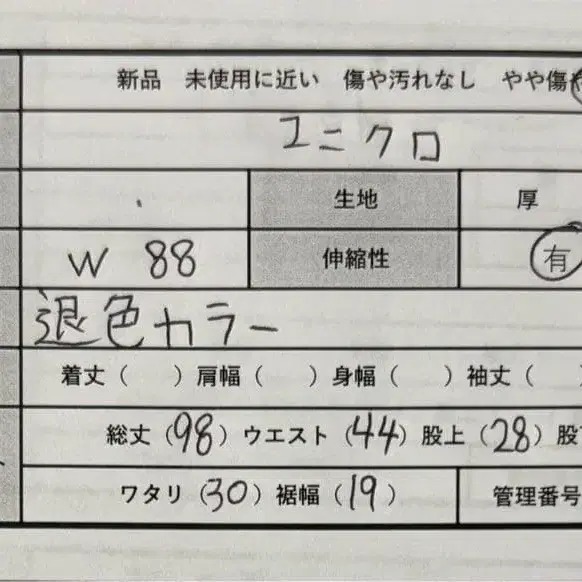 新品 未使用に近い 傷や汚れなし やや傷
ユニクロ
生地 厚
W 88 伸縮性 有
退色カラー
着丈（ ）肩幅（ ）身幅（ ）袖丈（
総丈（98）ウエスト（44）股上（28）股
ワタリ（30）裾幅（19）
管理番号